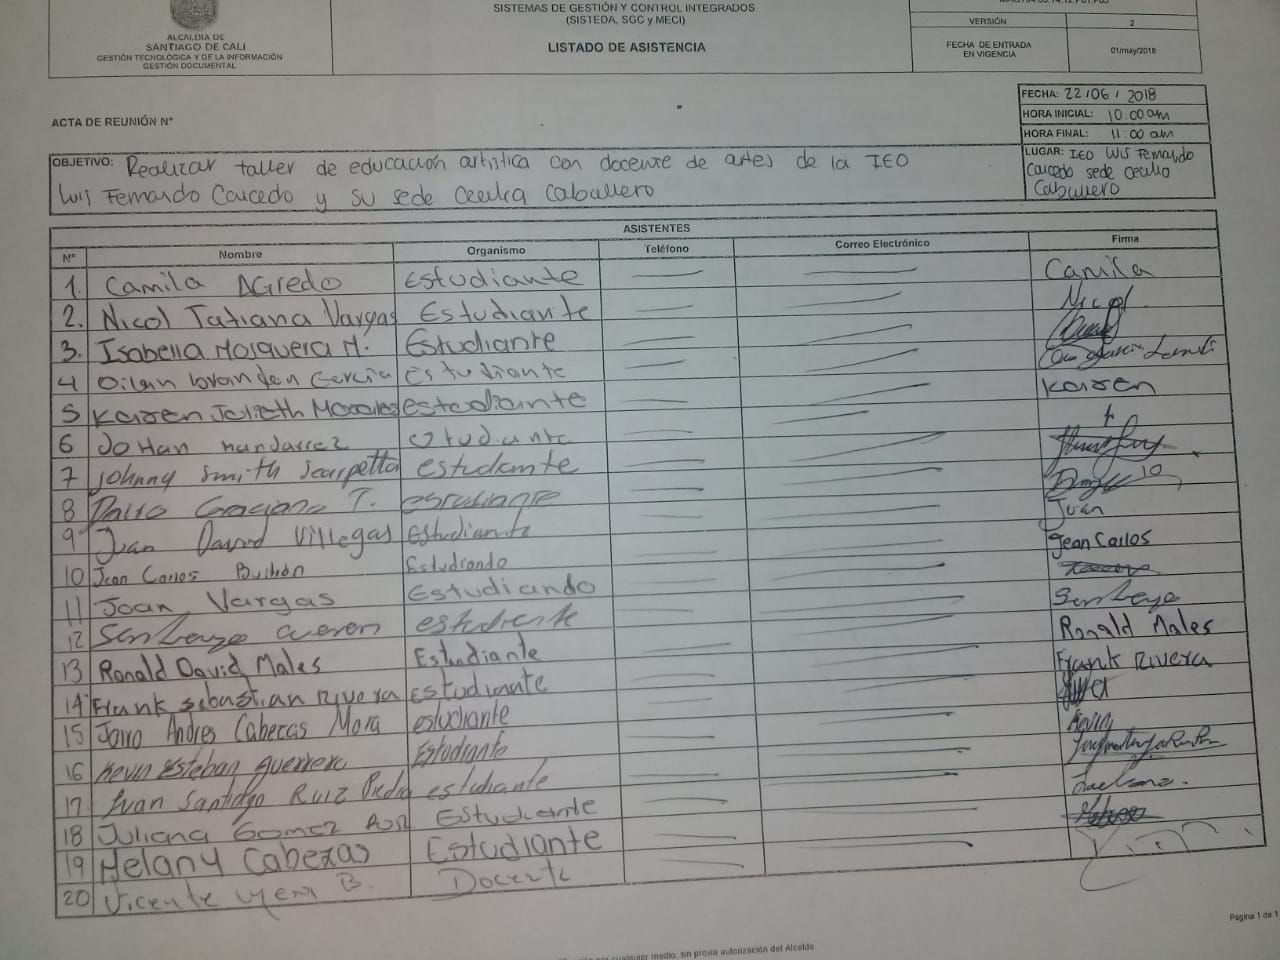 ALCALDIA DE
SANTIAGO DE CALI
GESTIÓN TECNOLÓGICA Y DE LA INFORMACIÓN
GESTIÓN DOCUMENTAL
SISTEMAS DE GESTIÓN Y CONTROL INTEGRADOS
(SISTEDA, SGC y MECI)
LISTADO DE ASISTENCIA
VERSIÓN 2
FECHA DE ENTRADA EN VIGENCIA 01/may/2018
ACTA DE REUNIÓN N°
FECHA: 22/06/2018
HORA INICIAL: 10:00 am
HORA FINAL: 11:00 am
OBJETIVO: Realizar taller de educación artistica con docente de artes de la IEO
Luis Fernando Caicedo y su sede Cecilia Caballero
LUGAR: IEO Luis Fernando
Caicedo sede Cecilia
Caballero
ASISTENTES
N° Nombre Organismo Teléfono Correo Electrónico Firma
1. Camila AGredo Estudiante Camila
2. Nicol Tatiana Vargas Estudiante Nicol
3. Isabella Mosquera M. Estudiante
4 García Estudiante
5 Karen Julieth Morales estudiante Karen
6 JoHan estudiante
7 Johnny Smith Scarpetta estudiante
8 T. estudiante
9 Juan David Villegas estudiante Juan
10 Jean Carlos Buitrón Estudiando Jean Carlos
11 Joan Vargas Estudiando
12 estudiente
13 Ronald David Males Estudiante Ronald Males
14 Frank sebastian Rivera estudiante Frank Rivera
15 Jairo Andres Cabezas Mora estudiante
16 Kevin Esteban Guerrero Estudiante Kevin
17 Ivan Santiago Ruiz estudiante
18 Juliana Gomez Estudiante
19 Helany Cabezas Estudiante
20 Vicente B. Docente
Página 1 de 1
por cualquier medio, sin previa autorización del Alcalde